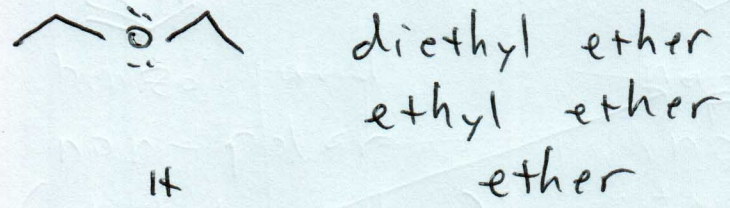 O diethyl ether
ethyl ether
H ether